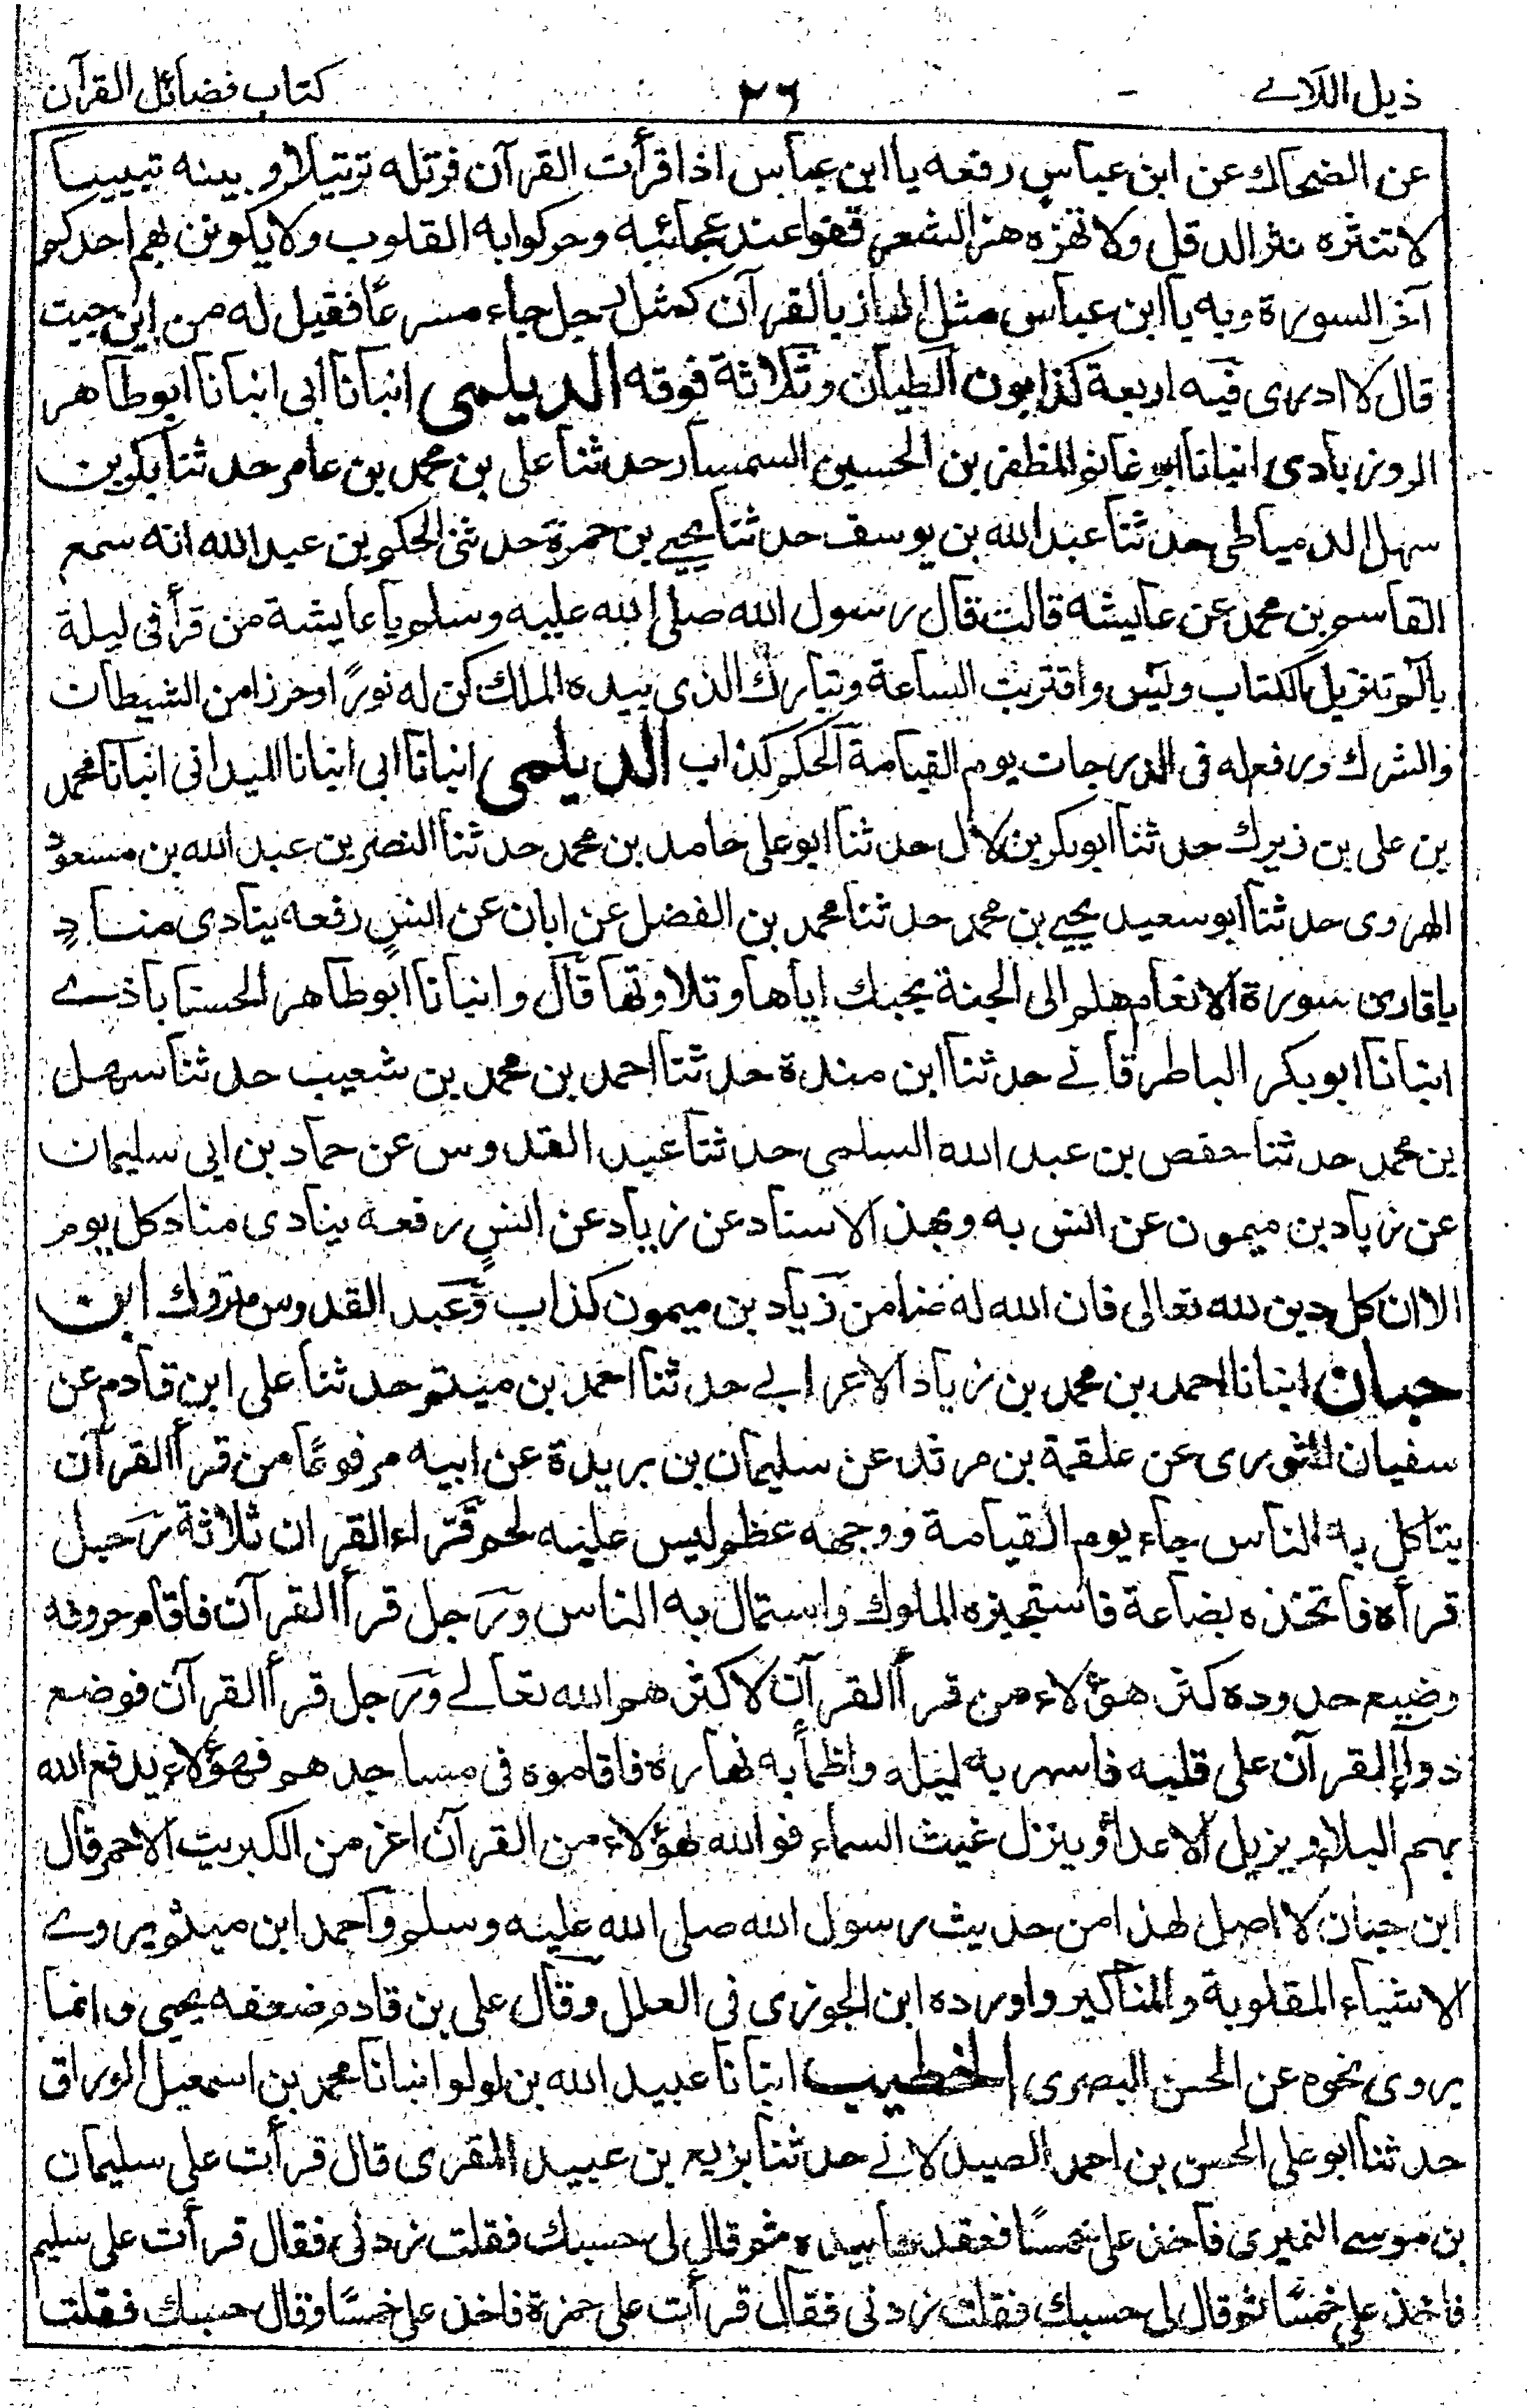 ذيل اللآلے ٢٦ كتاب فضائل القرآن
عن الضحاك عن ابن عباس رفعه يا ابن عباس اذا قرأت القرآن فرتله ترتيلا و بينه تبيينا
لا تنثره نثر الدقل ولا تهزه هز الشعر قفوا عند عجائبه وحركوا به القلوب ولا يكونن هم احدكم
آخر السورة وبه يا ابن عباس مثل الهاذ بالقرآن كمثل رجل جاء مسرعًا فقيل له من اين جيت
قال لا ادرى فيه اربعة كذابون الطيان وثلاثة فوقه الديلمى انبانا أبى انبانا ابو طاهر
الروزبادى انبانا ابو غانم المظفر بن الحسين السمسار حدثنا على بن محمد بن عامر حدثنا بكر بن
سهل الدمياطى حدثنا عبد الله بن يوسف حدثنا يحيے بن حمزة حدثنى الحكم بن عبد الله انه سمع
القاسم بن محمد عن عايشه قالت قال رسول الله صلى الله عليه وسلم يا عايشة من قرأ فى ليلة
بالم تنزيل الكتاب ويٰس واقتربت الساعة وتبارك الذى بيده الملك كن له نورًا وحرزا من الشيطان
والشرك ورفع له فى الدرجات يوم القيامة الحكم كذاب الديلمى انبانا ابى انبانا الميدانى انبانا محمد
بن على بن زيرك حدثنا ابو بكر بن لال حدثنا ابو على حامد بن محمد حدثنا النضر بن عبد الله بن مسعود
الهروى حدثنا ابو سعيد يحيے بن محمد حدثنا محمد بن الفضل عن ابان عن انسٍ رفعه ينادى منادٍ
يا قارئ سورة الانعام هلم الى الجنة بحبك اياها وتلاوتها قال و انبانا ابو طاهر الحسناباذے
انبانا ابو بكر الباطرقانے حدثنا ابن مندة حدثنا احمد بن محمد بن شعيب حدثنا سهل
بن محمد حدثنا حفص بن عبد الله السلمى حدثنا عبد القدوس عن حماد بن ابى سليمان
عن زياد بن ميمون عن انس به وبهذا الاسناد عن زياد عن انسٍ رفعه ينادى مناد كل يوم
الا ان كل دين لله تعالى فان الله له ضامن زياد بن ميمون كذاب وعبد القدوس متروك ابن
حبان انبانا احمد بن محمد بن زياد الاعرابے حدثنا احمد بن ميثم حدثنا على ابن قادم عن
سفيان الثورى عن علقمة بن مرثد عن سليمان بن بريدة عن ابيه مرفوعًا من قرأ القرآن
يتاكل به الناس جاء يوم القيامة ووجهه عظم ليس عليه لحم قراء القران ثلاثة رجل
قرأه فاتخذه بضاعة فاستجيزه الملوك واستمال به الناس ورجل قرأ القرآن فاقام حروفه
وضيع حدوده كثر هؤلاء من قرأ القرآن لا كثرهم الله تعالے ورجل قرأ القرآن فوضع
دواء القرآن على قلبه فاسهر به ليله واظمأ به نهاره فاقاموه فى مساجدهم فهؤلاء يدفع الله
بهم البلاء و يزيل الاعداء و ينزل غيث السماء فو الله لهؤلاء من القرآن اعز من الكبريت الاحمر قال
ابن حبان لا اصل لهذا من حديث رسول الله صلى الله عليه وسلم واحمد ابن ميثم يروے
الاشياء المقلوبة والمناكير واورده ابن الجوزى فى العلل وقال على بن قادم ضعفه يحيى وانما
يروى نحوه عن الحسن البصرى الخطيب انبانا عبيد الله بن لولو انبانا محمد بن اسمعيل الوراق
حدثنا ابو على الحسن بن احمد الصيدلانے حدثنا بزيع بن عبيد المقرى قال قرأت على سليمان
بن موسے النميرى فاخذ على خمسًا فعقد بيده ثم قال لى حسبك فقلت زدنى فقال قرأت على سليم
فاخذ على خمسًا ثم قال لى حسبك فقلت زدنى فقال قرأت على حمزة فاخذ على خمسًا وقال حسبك فقلت